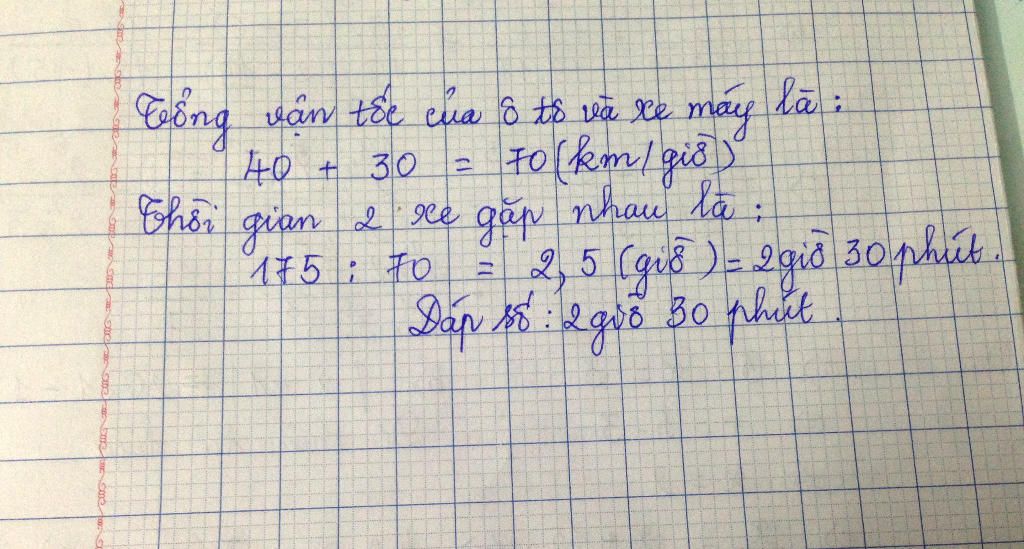 Tổng vận tốc của ô tô và xe máy là:
40 + 30 = 70 (km/giờ)
Thời gian 2 xe gặp nhau là:
175 : 70 = 2,5 (giờ) = 2 giờ 30 phút.
Đáp số: 2 giờ 30 phút.